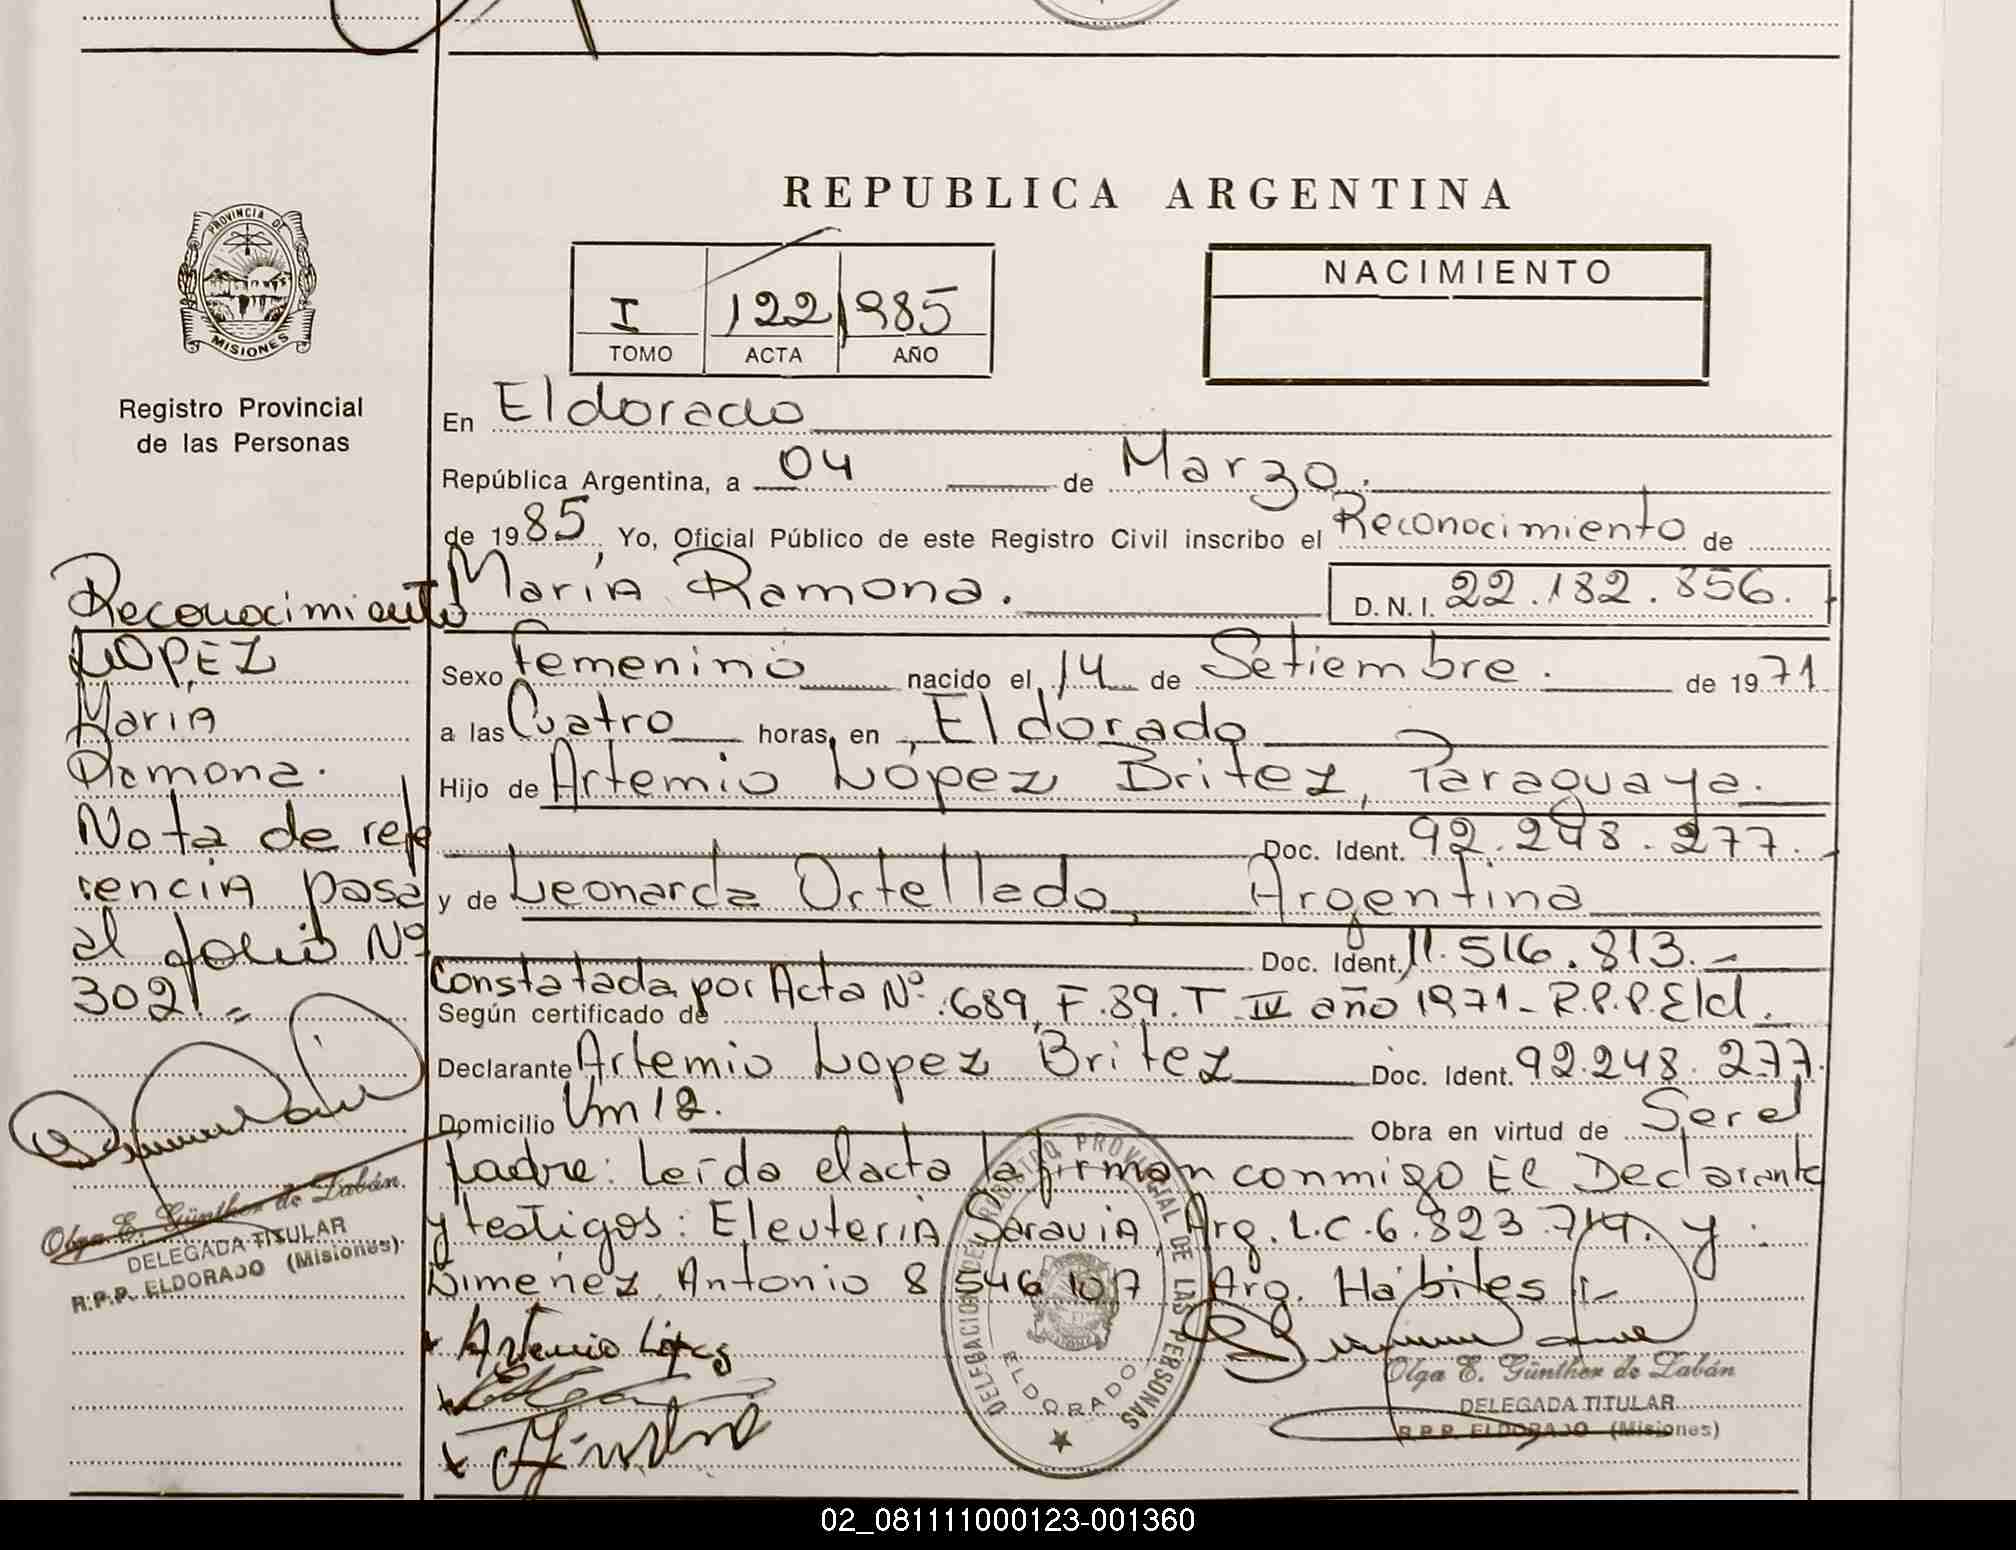 REPUBLICA ARGENTINA
PROVINCIA DE
MISIONES
Registro Provincial
de las Personas
I 122 1985
TOMO ACTA AÑO
NACIMIENTO
En Eldorado
República Argentina, a 04 de Marzo.
de 1985, Yo, Oficial Público de este Registro Civil inscribo el Reconocimiento de
María Ramona. D. N. I. 22.182.856.
Sexo femenino nacido el 14 de Setiembre. de 1971
a las Cuatro horas, en Eldorado
Hijo de Artemio López Britez, Paraguaya.
Doc. Ident. 92.248.277.
y de Leonarda Ortellado, Argentina
Doc. Ident. 11.516.813.-
Constatada por Acta Nº 689, F.89. T IV año 1971- R.P.P. Eld.
Según certificado de
Declarante Artemio Lopez Britez Doc. Ident. 92.248.277.
Domicilio Km 12. Obra en virtud de Ser el
padre: Leída el acta la firman conmigo El Declarante
y testigos: Eleuteria Saravia, Arg. L.C. 6.823.714. y
Jimenez, Antonio 8 546 107 Arg. Hábiles
Artemio López
Reconocimiento
LOPEZ
María
Ramona.
Nota de refe
rencia pasa
al folio Nº
302.=
Olga E. Günther de Zabán
DELEGADA TITULAR
R.P.P. ELDORADO (Misiones)
DELEGACION DEL REGISTRO PROVINCIAL DE LAS PERSONAS
ELDORADO
Olga E. Günther de Zabán
DELEGADA TITULAR
R.P.P. ELDORADO (Misiones)
02_081111000123-001360